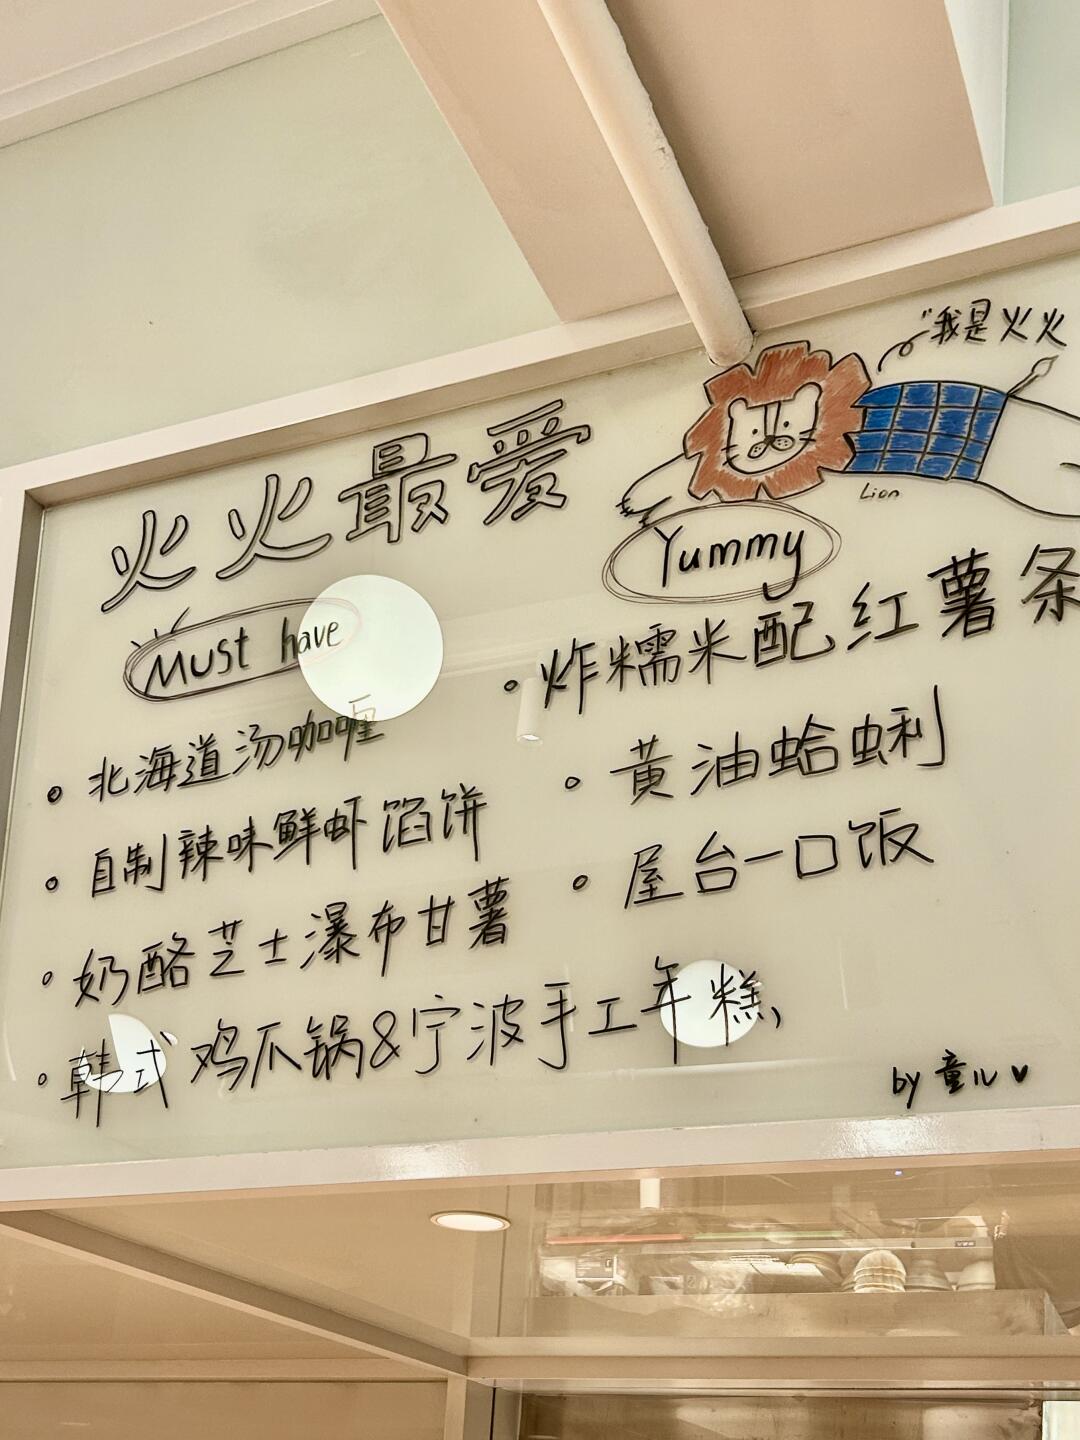 "我是火火
火火最爱
Lion
Must have
Yummy
• 北海道汤咖喱
• 自制辣味鲜虾馅饼
• 奶酪芝士瀑布甘薯
• 韩式鸡爪锅&宁波手工年糕
• 炸糯米配红薯条
• 黄油蛤蜊
• 屋台一口饭
by 童儿♥